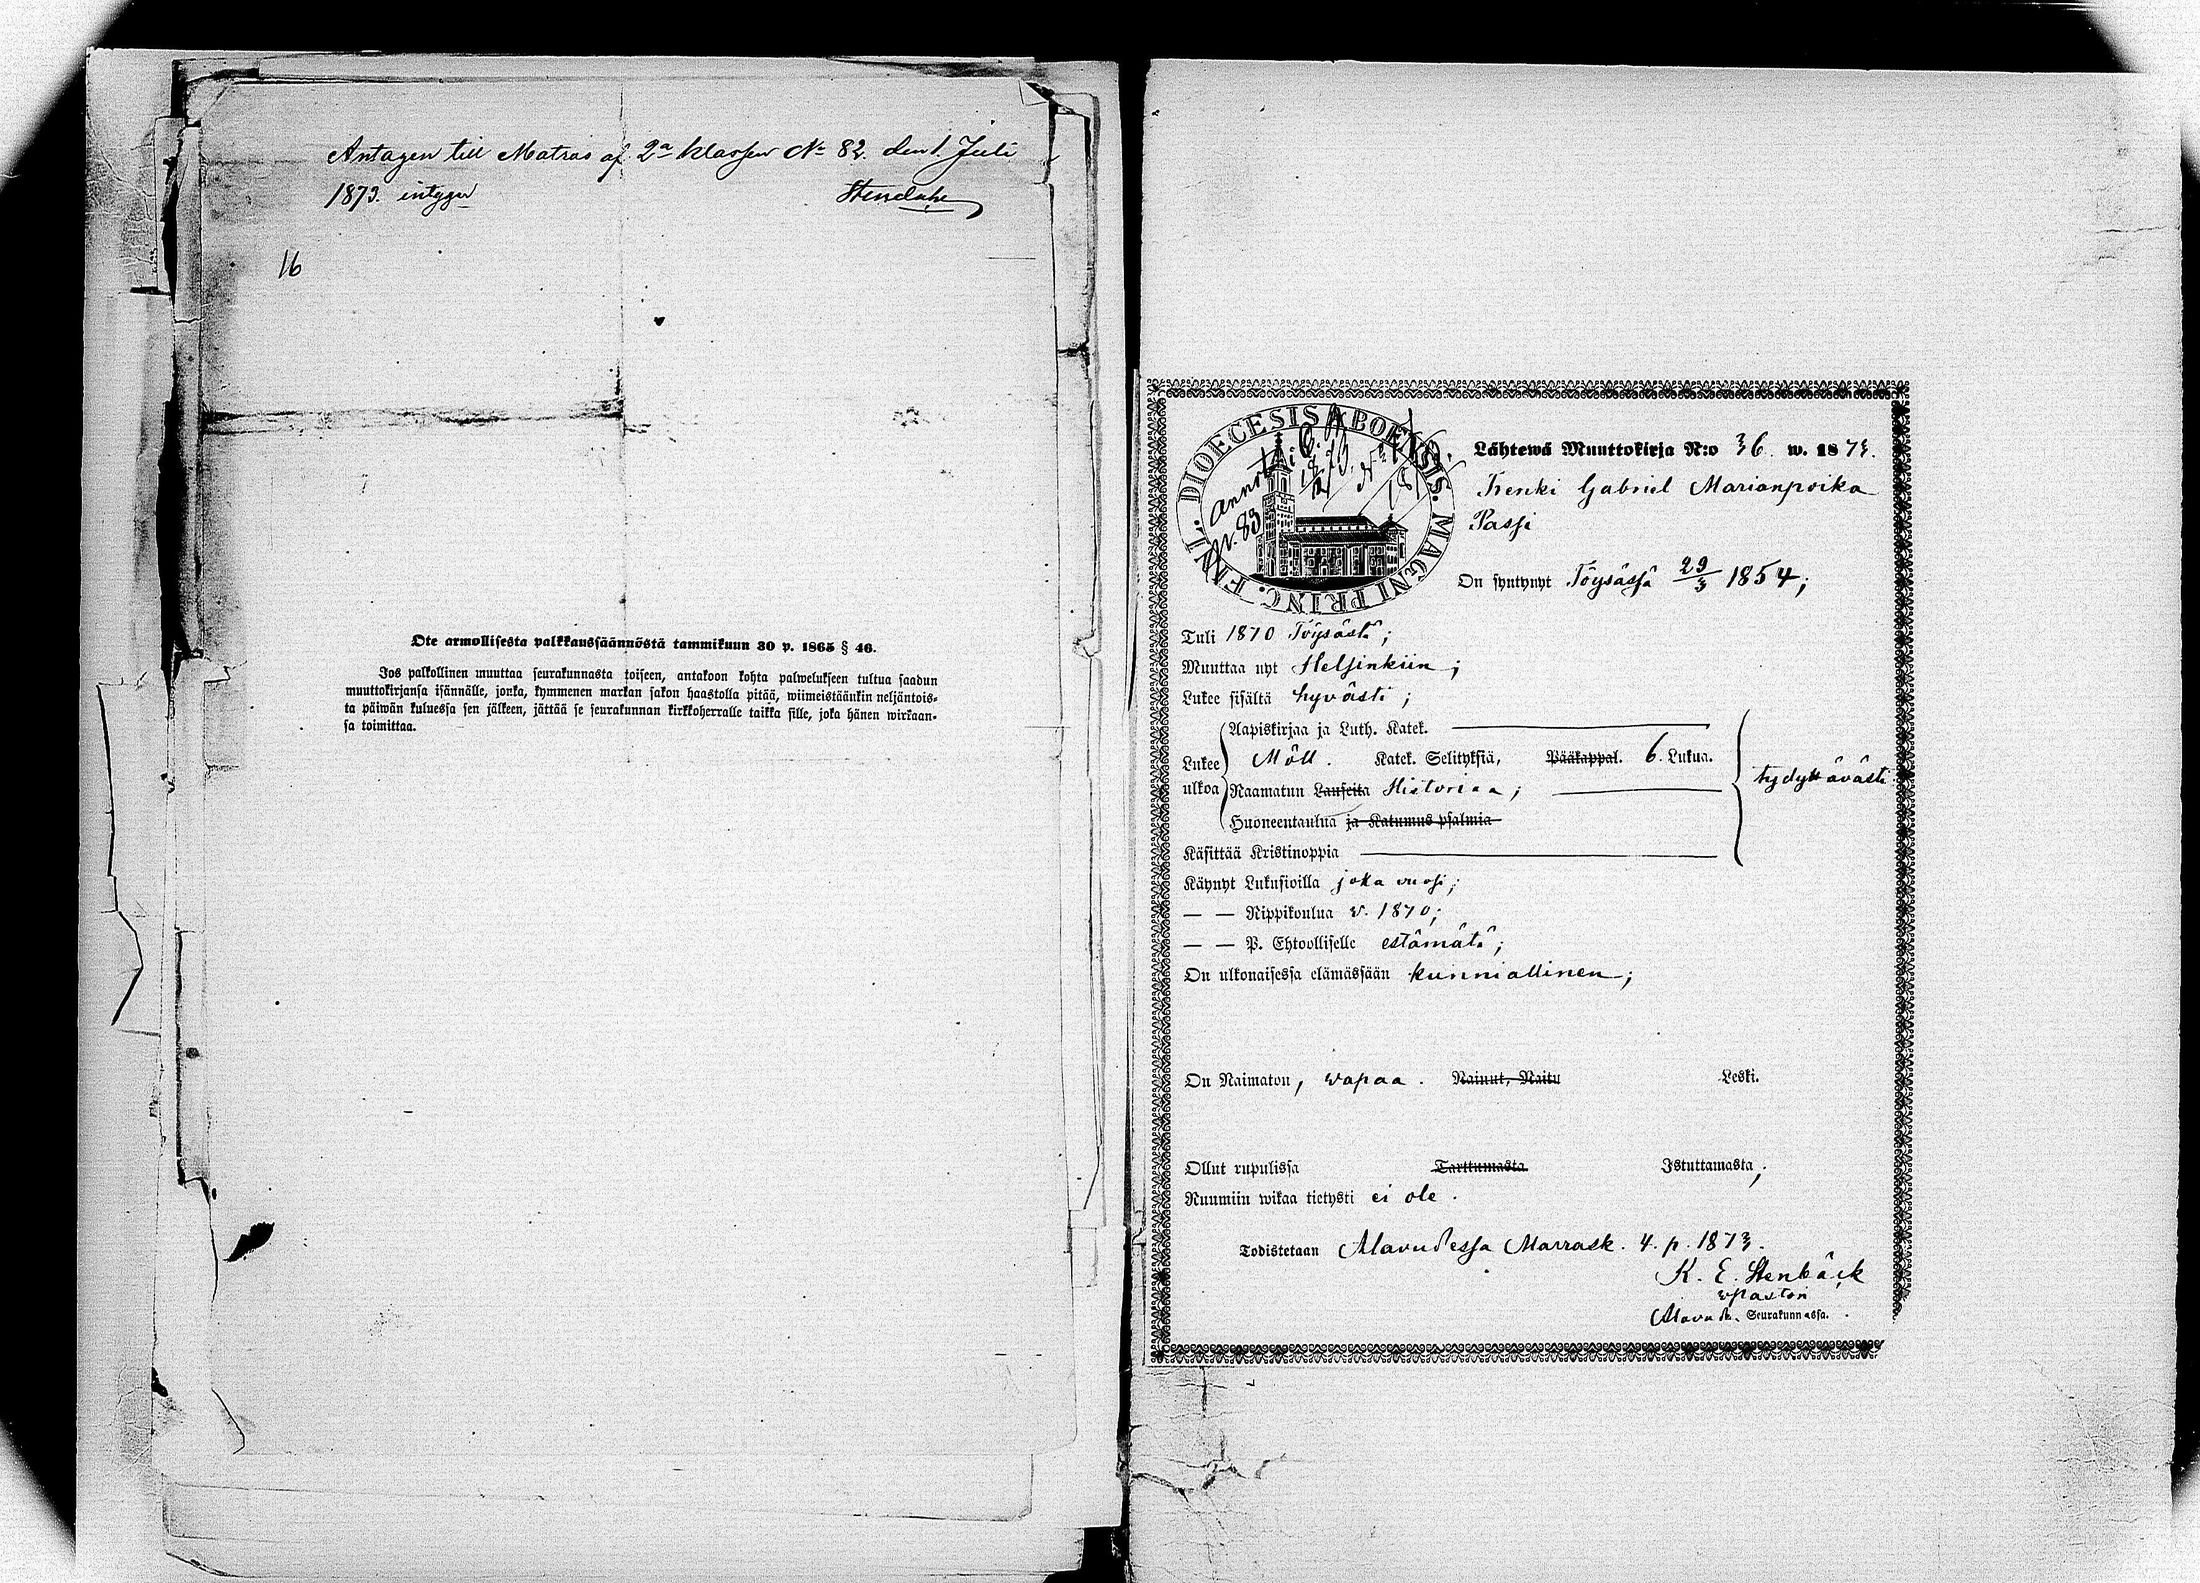 Antagen till Matros af 2a klassen No 82. den 1. Juli
1873. intygar
16
Ote armollisesta palkkaussäännöstä tammikuun 30 p. 1865 § 46.
Jos palkollinen muuttaa seurakunnasta toiseen, antakoon kohta palwelukseen tultua saadun
muuttokirjansa isännälle, jonka, kymmenen markan sakon haastolla pitää, wiimeistäänkin neljäntois-
ta päiwän kuluessa sen jälkeen, jättää se seurakunnan kirkkoherralle taikka sille, joka hänen wirkaan-
sa toimittaa.
DIOECESIS ABOENSIS. MAGNI PRINC. FINL.
Annot. i
N. 83
Lähtewä Muuttokirja N:o 36. w. 1873.
Renki Gabriel Marianpoika
Passi
On syntynyt Töysässä 29/3 1854;
Tuli 1870 Töysästä;
Muuttaa nyt Helsinkiin;
Lukee sisältä hyvästi;
Aapiskirjaa ja Luth. Katek.
Lukee Möll. Katek. Selityksiä, Pääkappal. 6. Lukua.
tydyttävästi
ulkoa Raamatun Lauseita Historiaa;
Huoneentaulua ja Katumus psalmia
Käsittää Kristinoppia
Käynyt Lukusioilla joka vuosi;
— — Rippikoulua v. 1870;
— — P. Ehtoolliselle estämätä;
On ulkonaisessa elämässään kunniallinen;
On Naimaton, vapaa. Nainut, Naitu Leski.
Ollut rupulissa Tarttumasta Istuttamasta;
Ruumiin wikaa tietysti ei ole.
Todistetaan Alavudessa Marrask. 4. p. 1873.
K. E. Stenbäck
vpastori
Alavud. Seurakunnassa.